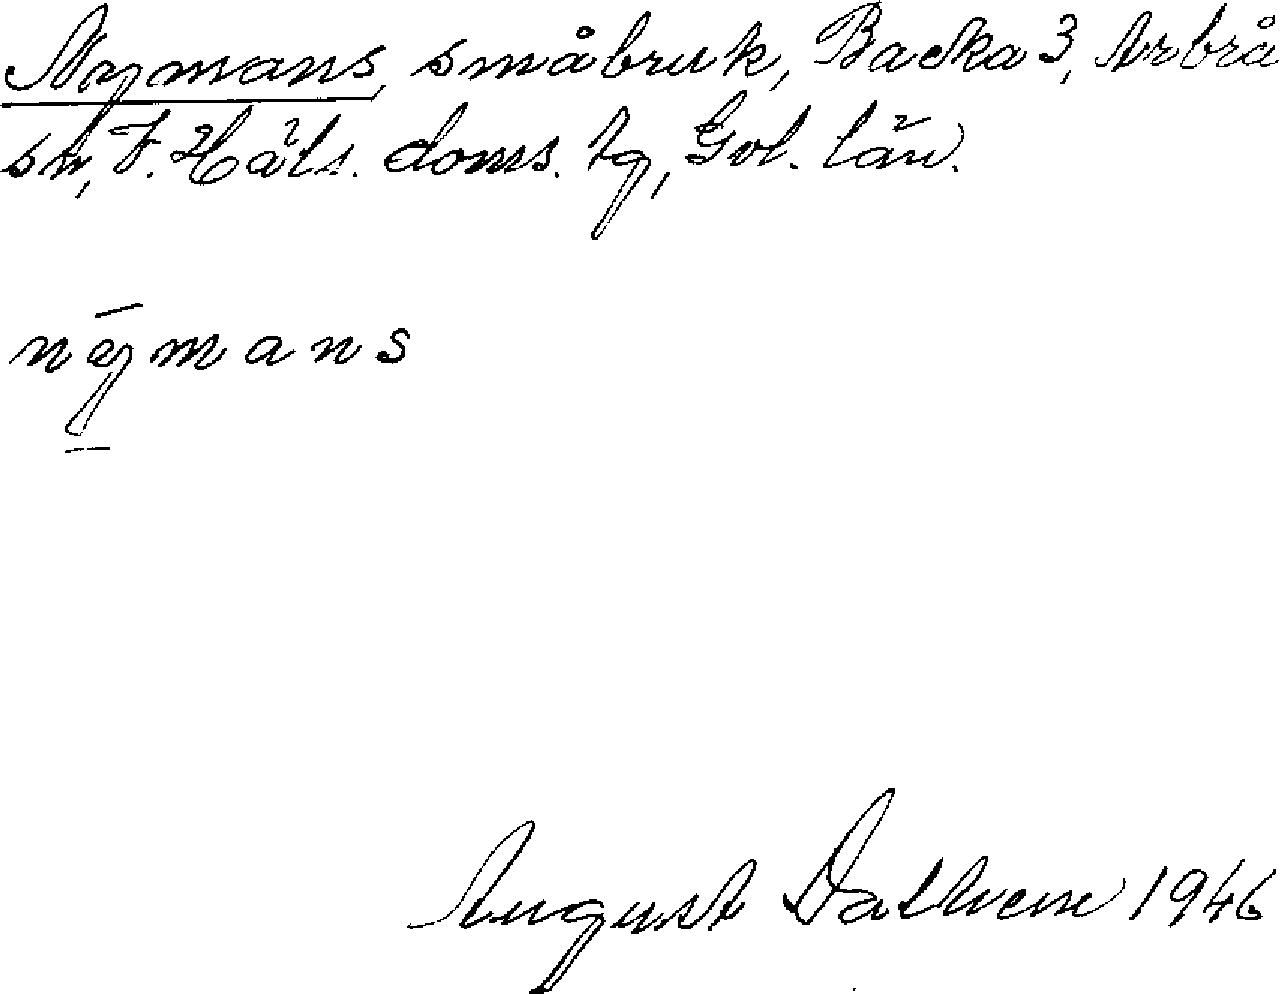 Nymans, småbruk, Backa 3, Arbrå
sn, V. Häls. doms. tg, Gvl. län.
nýmans
August Dathem 1946